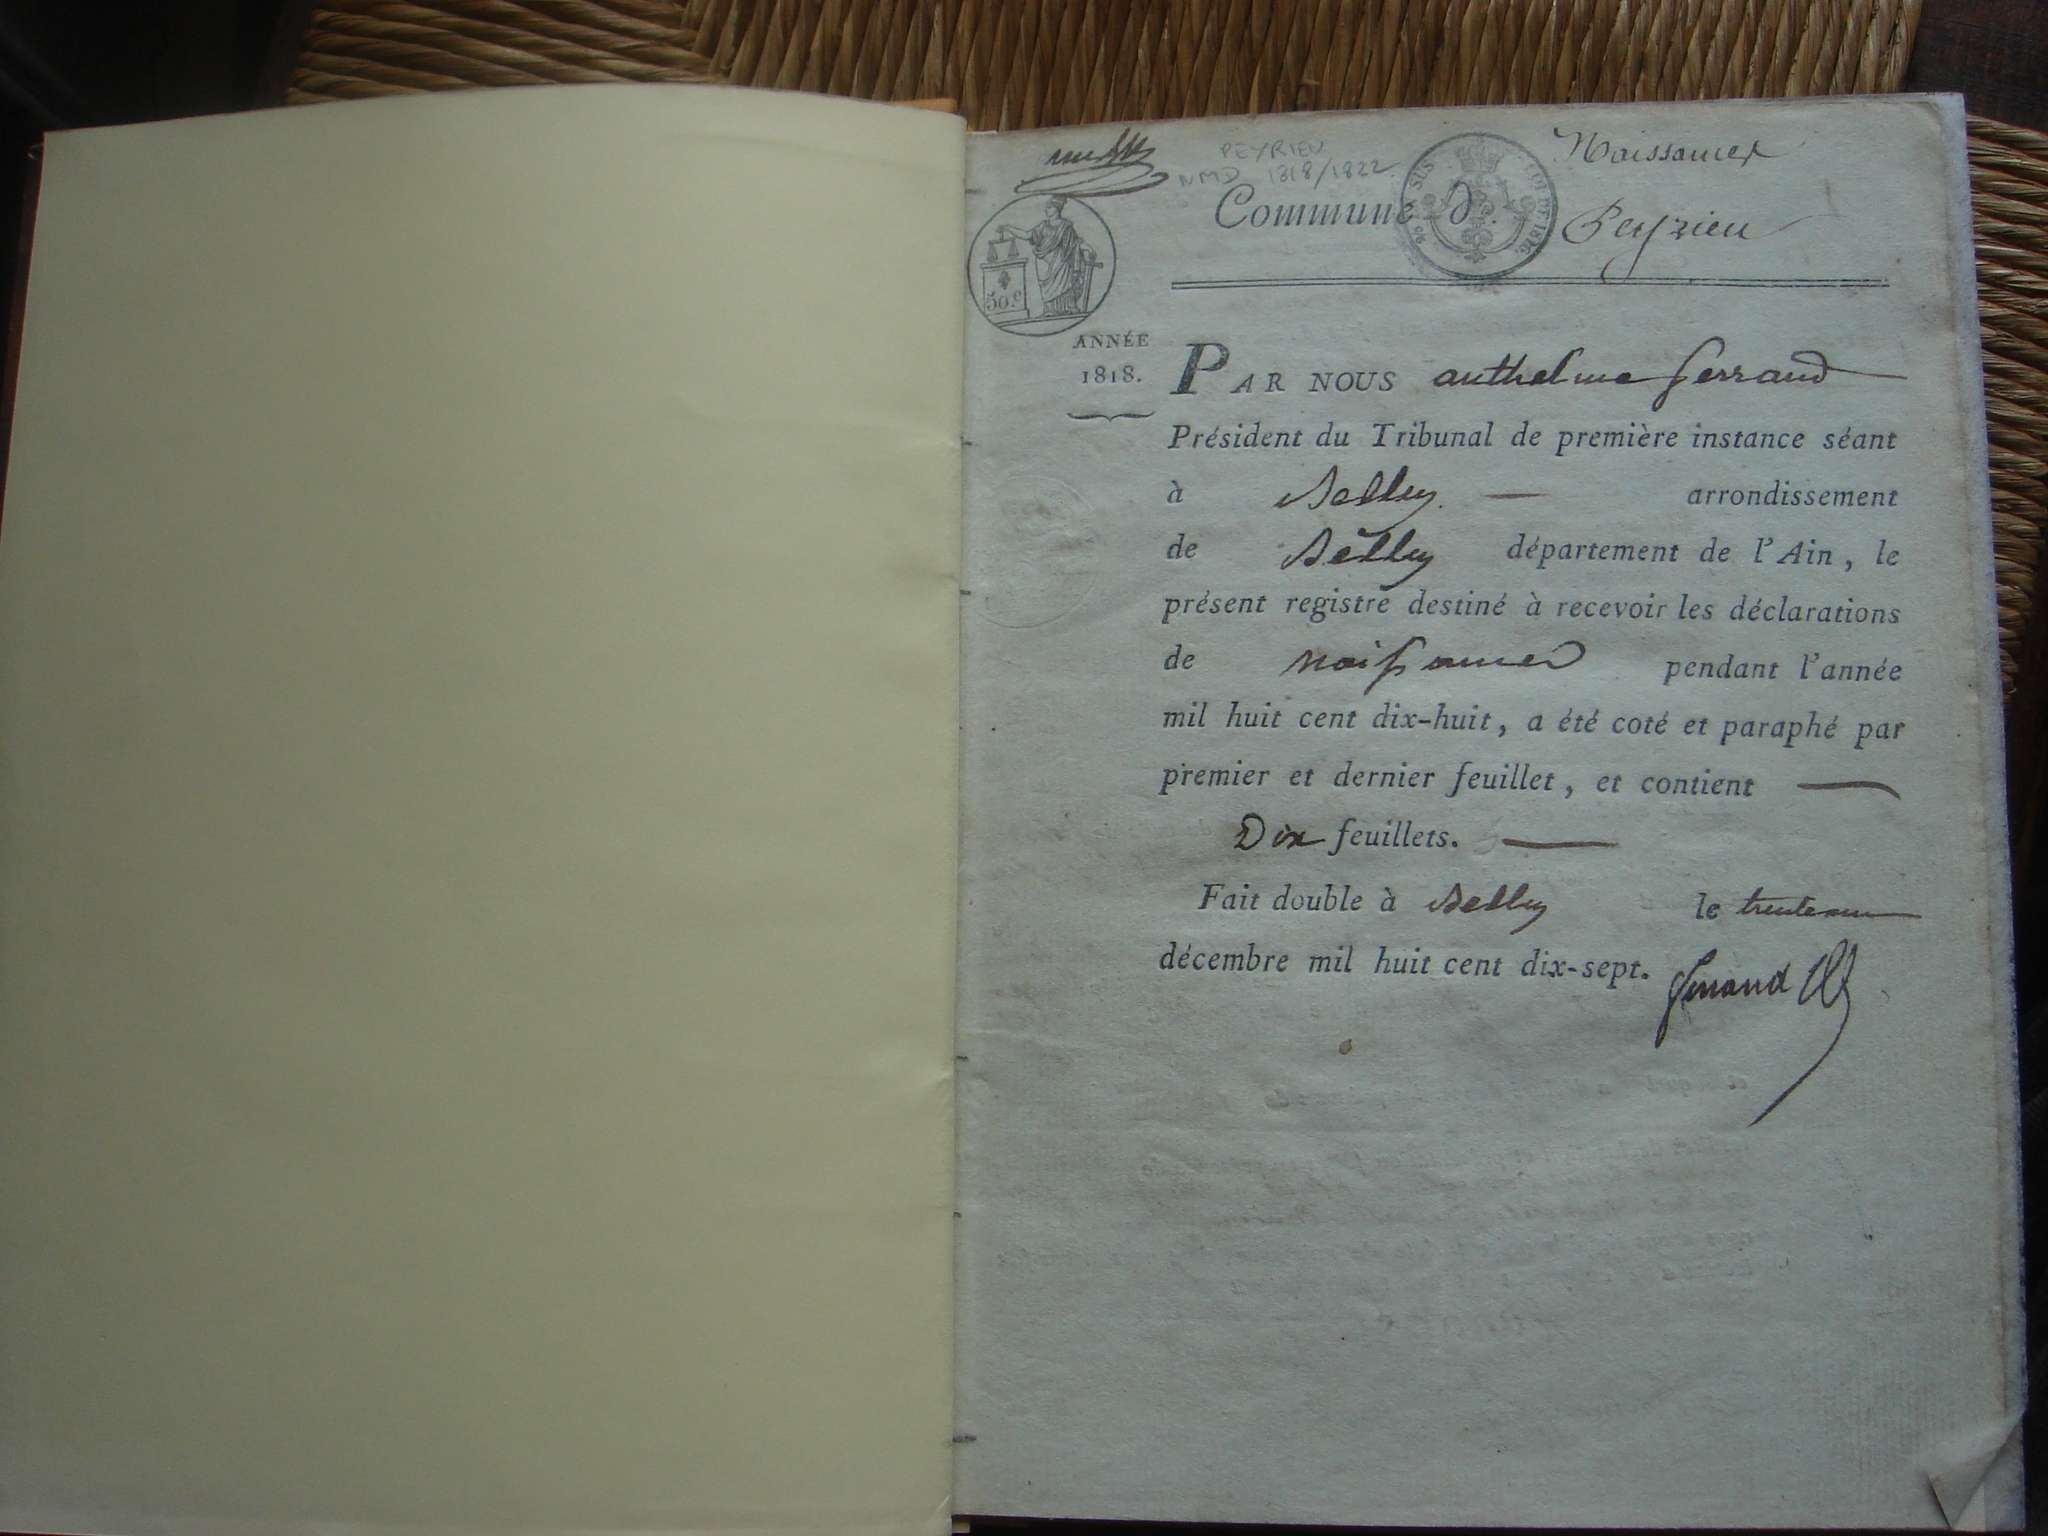 PEYRIEU
NMD 1818/1822.
Naissances
Commune d. Peyrieu
50.c
ANNÉE
1818.
PAR NOUS anthelme ferrand
Président du Tribunal de première instance séant
à Belley. arrondissement
de Belley département de l'Ain, le
présent registre destiné à recevoir les déclarations
de naissances pendant l'année
mil huit cent dix-huit, a été coté et paraphé par
premier et dernier feuillet, et contient
Dix feuillets.
Fait double à Belley le trente un
décembre mil huit cent dix-sept.
ferrand